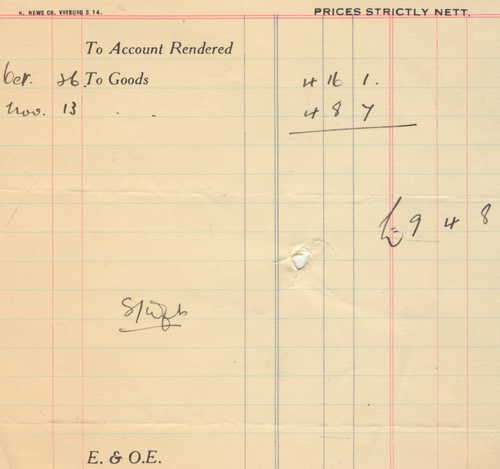 N. NEWS CO. VRYBURG S 14.
PRICES STRICTLY NETT.
To Account Rendered
Oct. 26. To Goods 4 16 1.
Nov. 13 " " 4 8 7
£ 9 4 8
E. & O.E.